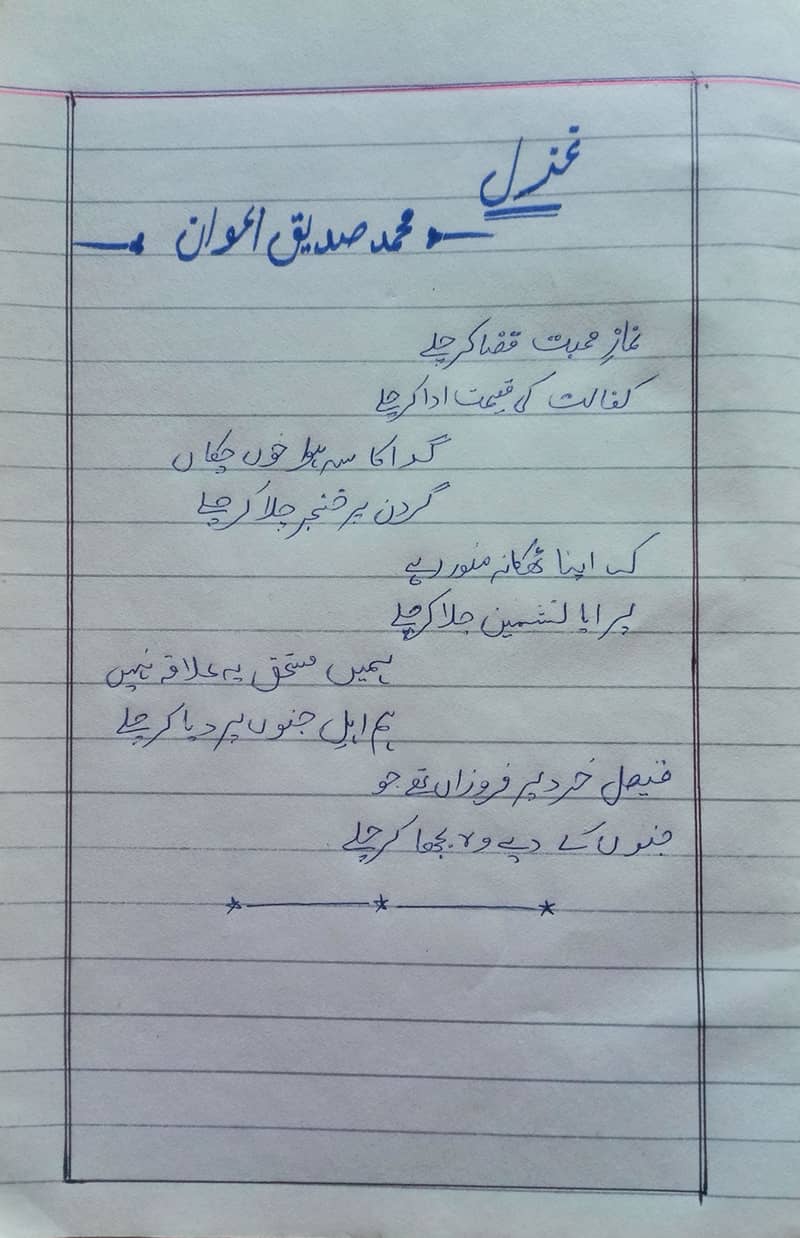 غزل
محمد صدیق اعوان
نمازِ محبت قضا کر چلے
کفالت کی قیمت ادا کر چلے
گدا کا سہ ہوا خوں چکاں
گردن پر خنجر چلا کر چلے
کہ اپنا ٹھکانہ منور رہے
پرایا نشمین جلا کر چلے
ہمیں مستحق یہ علاقہ نہیں
ہم اہلِ جنوں پر دیا کر چلے
فیصل خرد پر فروزاں تھے جو
جنوں کے دیے وہ بجھا کر چلے